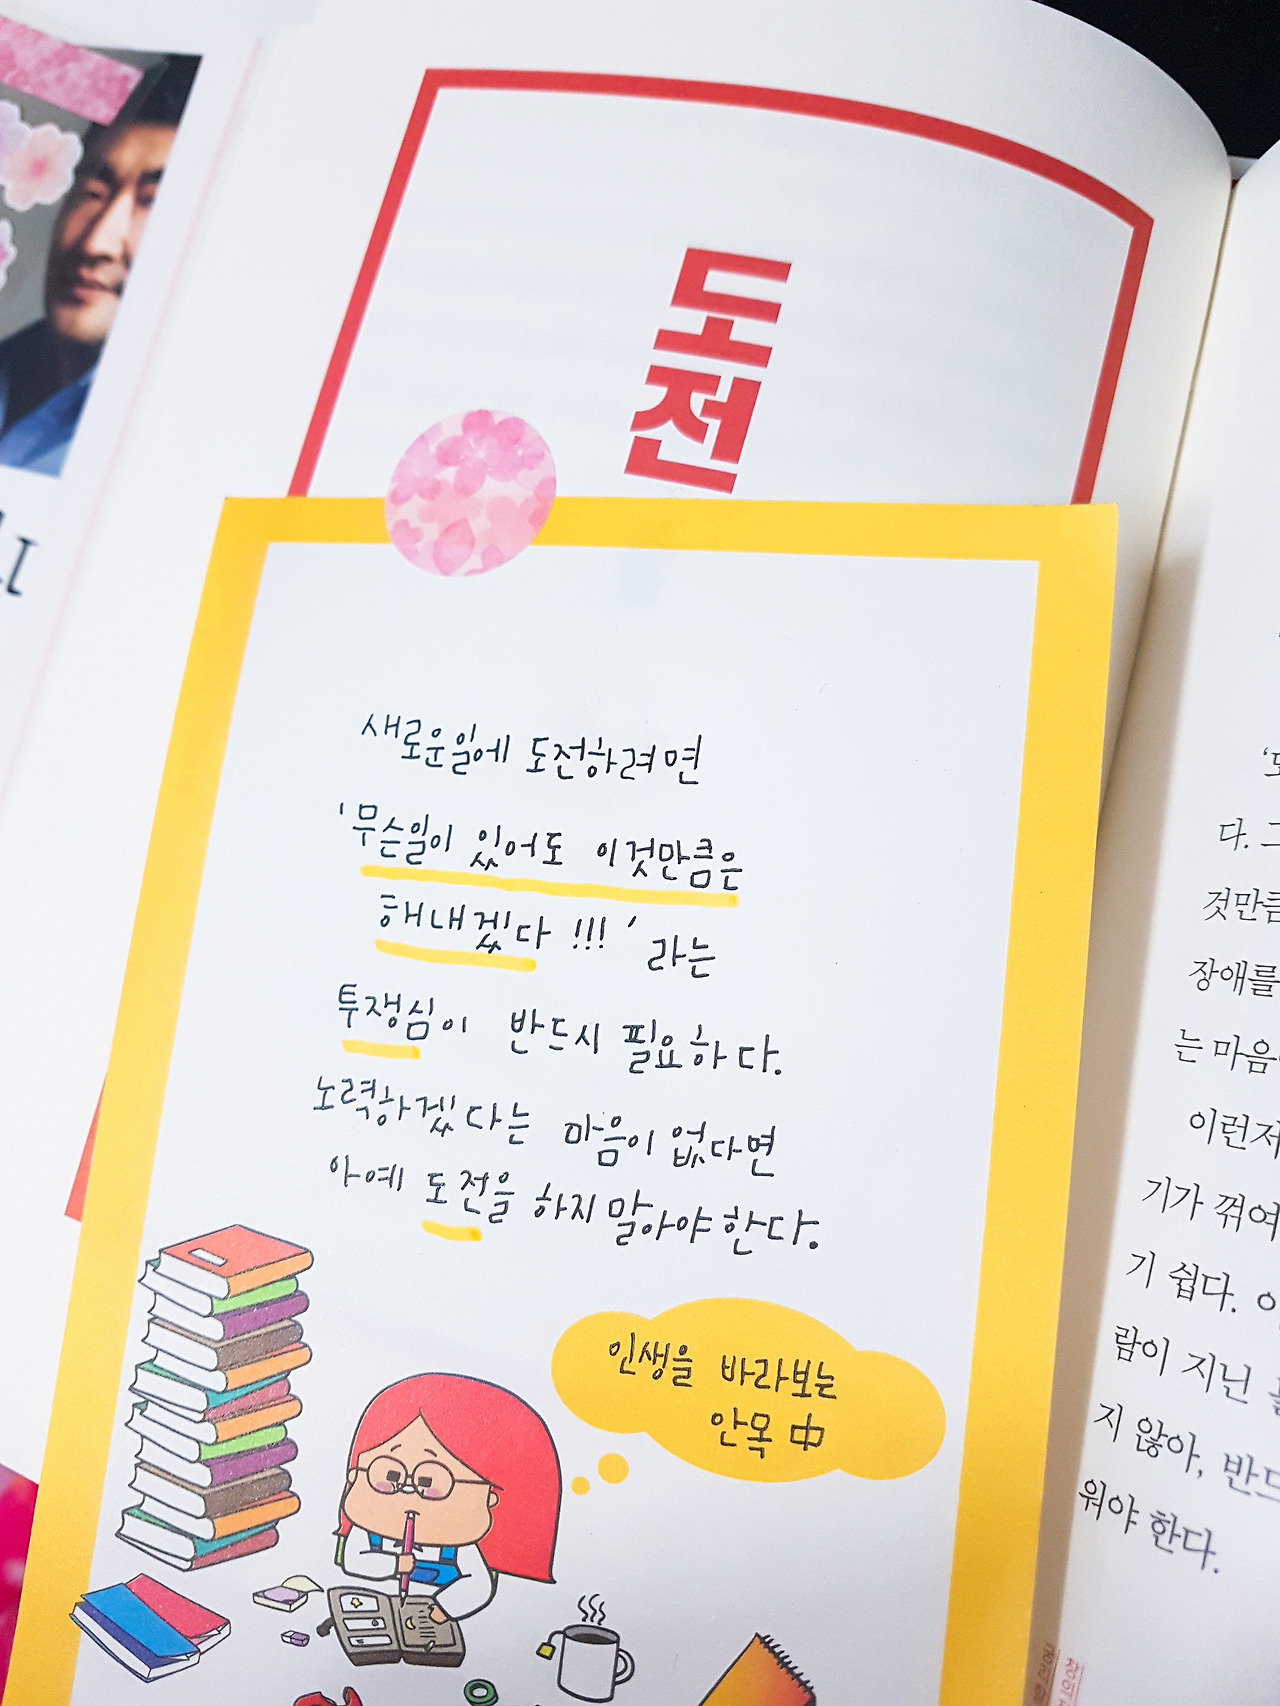 도
전
새로운일에 도전하려면
'무슨일이 있어도 이것만큼은
해내겠다 !!!' 라는
투쟁심이 반드시 필요하다.
노력하겠다는 마음이 없다면
아예 도전을 하지 말아야 한다.
인생을 바라보는
안목 中
다.
것만큼
장애를
는 마음
이런저
기가 꺾여
기 쉽다.
람이 지닌
지 않아, 반드
워야 한다.